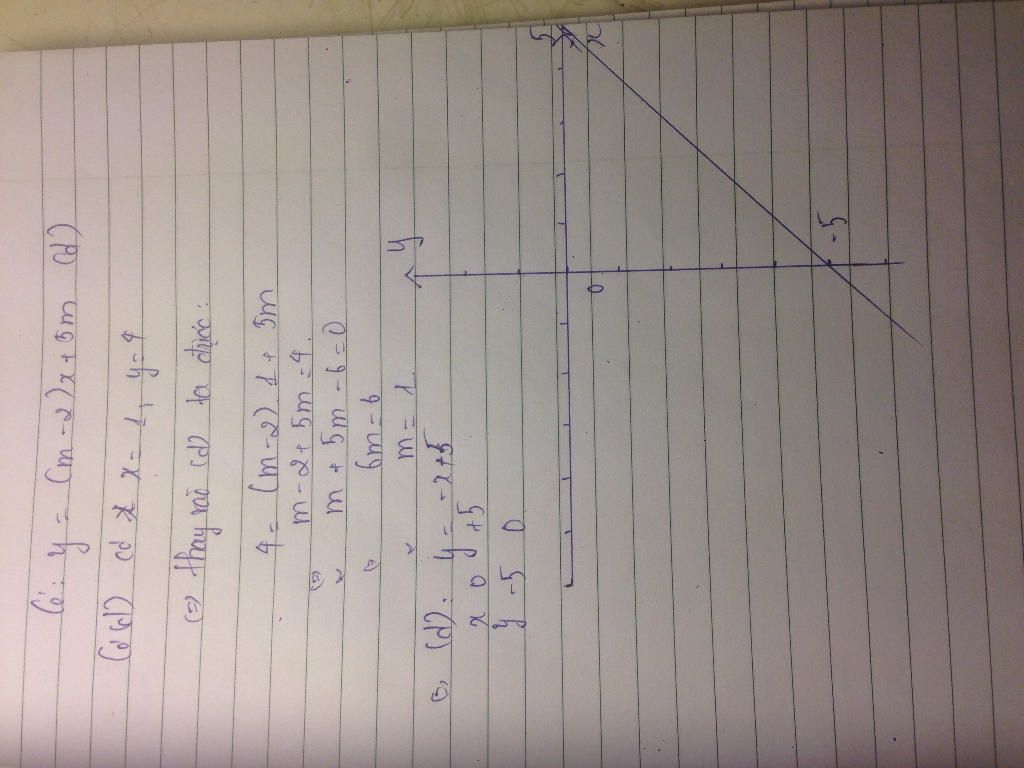 Có: y = (m - 2)x + 5m (d)
(d) x = 1, y = 4
(=) thay vào (d) ta được:
4 = (m - 2).1 + 5m
(=) m - 2 + 5m = 4
m + 5m - 6 = 0
6m = 6
m = 1
(d): y = -x+5
x 0 +5
y -5 0
y
5
x
0
-5